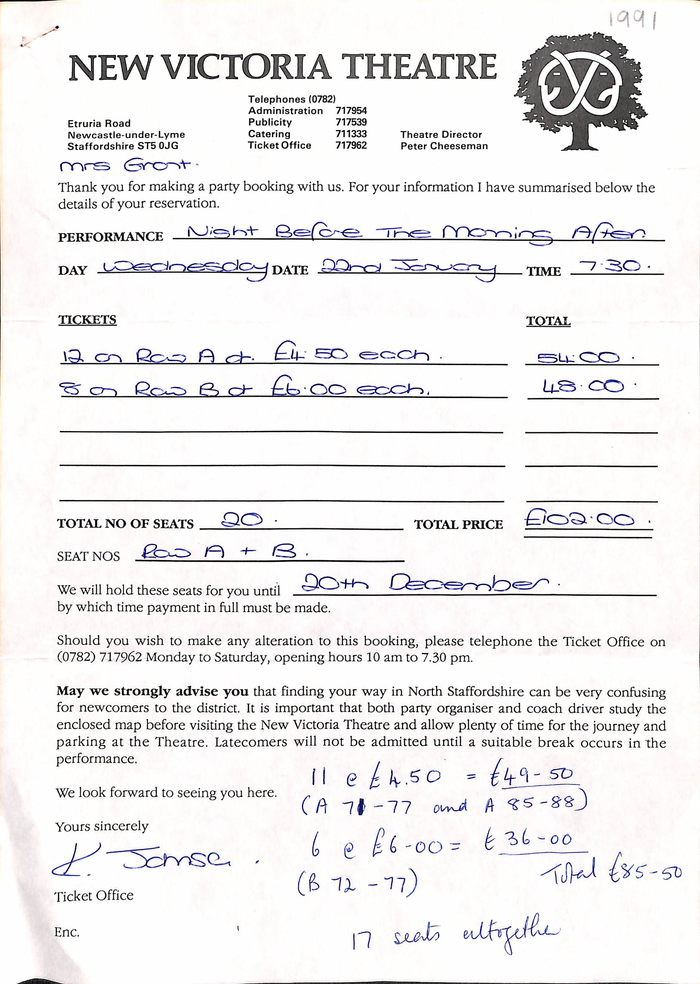 1991
NEW VICTORIA THEATRE
Telephones (0782)
Administration 717954
Etruria Road Publicity 717539
Newcastle-under-Lyme Catering 711333 Theatre Director
Staffordshire ST5 0JG Ticket Office 717962 Peter Cheeseman
Mrs Grant.
Thank you for making a party booking with us. For your information I have summarised below the
details of your reservation.
PERFORMANCE Night Before The Morning After
DAY Wednesday DATE 22nd January TIME 7.30.
TICKETS TOTAL
12 on Row A at £4.50 each. 54.00.
8 on Row B at £6.00 each. 48.00.
TOTAL NO OF SEATS 20. TOTAL PRICE £102.00.
SEAT NOS Row A + B.
We will hold these seats for you until 20th December.
by which time payment in full must be made.
Should you wish to make any alteration to this booking, please telephone the Ticket Office on
(0782) 717962 Monday to Saturday, opening hours 10 am to 7.30 pm.
May we strongly advise you that finding your way in North Staffordshire can be very confusing
for newcomers to the district. It is important that both party organiser and coach driver study the
enclosed map before visiting the New Victoria Theatre and allow plenty of time for the journey and
parking at the Theatre. Latecomers will not be admitted until a suitable break occurs in the
performance.
11 @ £4.50 = £49-50
We look forward to seeing you here.
(A 71-77 and A 85-88)
Yours sincerely
6 @ £6-00 = £36-00
Total £85-50
(B 72-77)
Ticket Office
17 seats altogether
Enc.